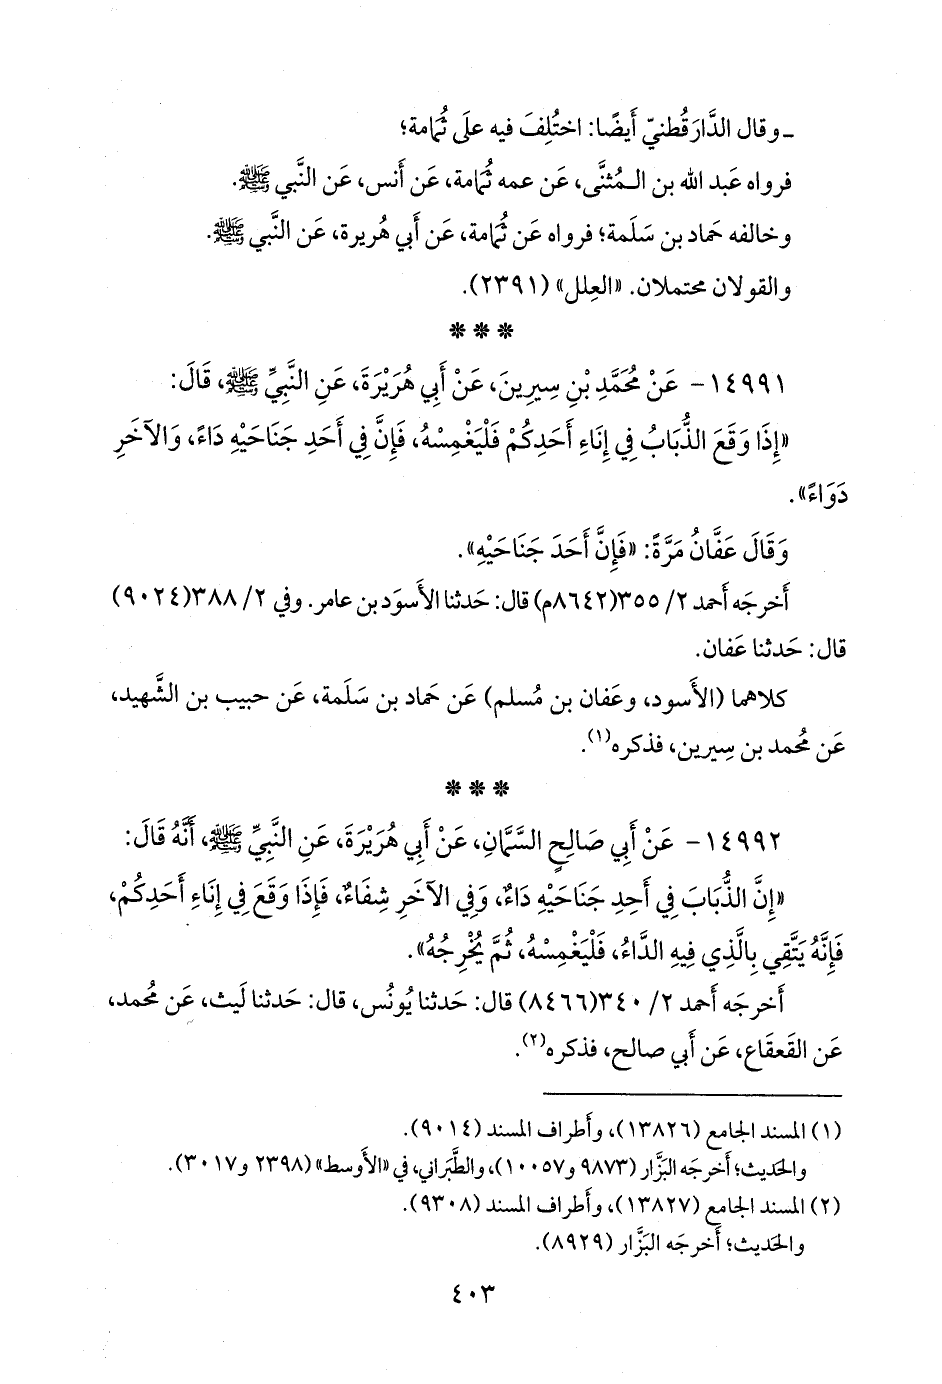 ـ وقال الدَّارَقُطنيّ أَيضًا: اختُلِفَ فيه علَى ثُمامة؛
فرواه عَبد الله بن الـمُثنَّى، عَن عمه ثُمامة، عَن أَنس، عَن النَّبي ﷺ.
وخالفه حَماد بن سَلَمة؛ فرواه عَن ثُمامة، عَن أَبي هُريرة، عَن النَّبي ﷺ.
والقولان محتملان. «العِلل» (٢٣٩١).
***
١٤٩٩١- عَنْ مُحَمَّدِ بْنِ سِيرِينَ، عَنْ أَبِي هُرَيْرَةَ، عَنِ النَّبِيِّ ﷺ، قَالَ:
«إِذَا وَقَعَ الذُّبَابُ فِي إِنَاءِ أَحَدِكُمْ فَلْيَغْمِسْهُ، فَإِنَّ فِي أَحَدِ جَنَاحَيْهِ دَاءً، وَالآخَرِ
دَوَاءً».
وَقَالَ عَفَّانُ مَرَّةً: «فَإِنَّ أَحَدَ جَنَاحَيْهِ».
أَخرجَه أَحمد ٢/ ٣٥٥(٨٦٤٢م) قال: حَدثنا الأَسوَد بن عامر. وفي ٢/ ٣٨٨(٩٠٢٤)
قال: حَدثنا عَفان.
كلاهما (الأَسود، وعَفان بن مُسلم) عَن حَماد بن سَلَمة، عَن حبيب بن الشَّهيد،
عَن مُحمد بن سِيرين، فذكره(١).
***
١٤٩٩٢- عَنْ أَبِي صَالِحٍ السَّمَّانِ، عَنْ أَبِي هُرَيْرَةَ، عَنِ النَّبِيِّ ﷺ، أَنَّهُ قَالَ:
«إِنَّ الذُّبَابَ فِي أَحِدِ جَنَاحَيْهِ دَاءٌ، وَفِي الآخَرِ شِفَاءٌ، فَإِذَا وَقَعَ فِي إِنَاءِ أَحَدِكُمْ،
فَإِنَّهُ يَتَّقِي بِالَّذِي فِيهِ الدَّاءُ، فَلْيَغْمِسْهُ، ثُمَّ يُخْرِجُهُ».
أَخرجَه أَحمد ٢/ ٣٤٠(٨٤٦٦) قال: حَدثنا يُونُس، قال: حَدثنا لَيث، عَن مُحمد،
عَن القَعقَاع، عَن أَبي صالح، فذكره(٢).
(١) المسند الجامع (١٣٨٢٦)، وأَطراف المسند (٩٠١٤).
والحَديث؛ أَخرجَه البَزَّار (٩٨٧٣ و١٠٠٥٧)، والطَّبَراني، في «الأَوسط» (٢٣٩٨ و٣٠١٧).
(٢) المسند الجامع (١٣٨٢٧)، وأَطراف المسند (٩٣٠٨).
والحَديث؛ أَخرجَه البَزَّار (٨٩٢٩).
٤٠٣